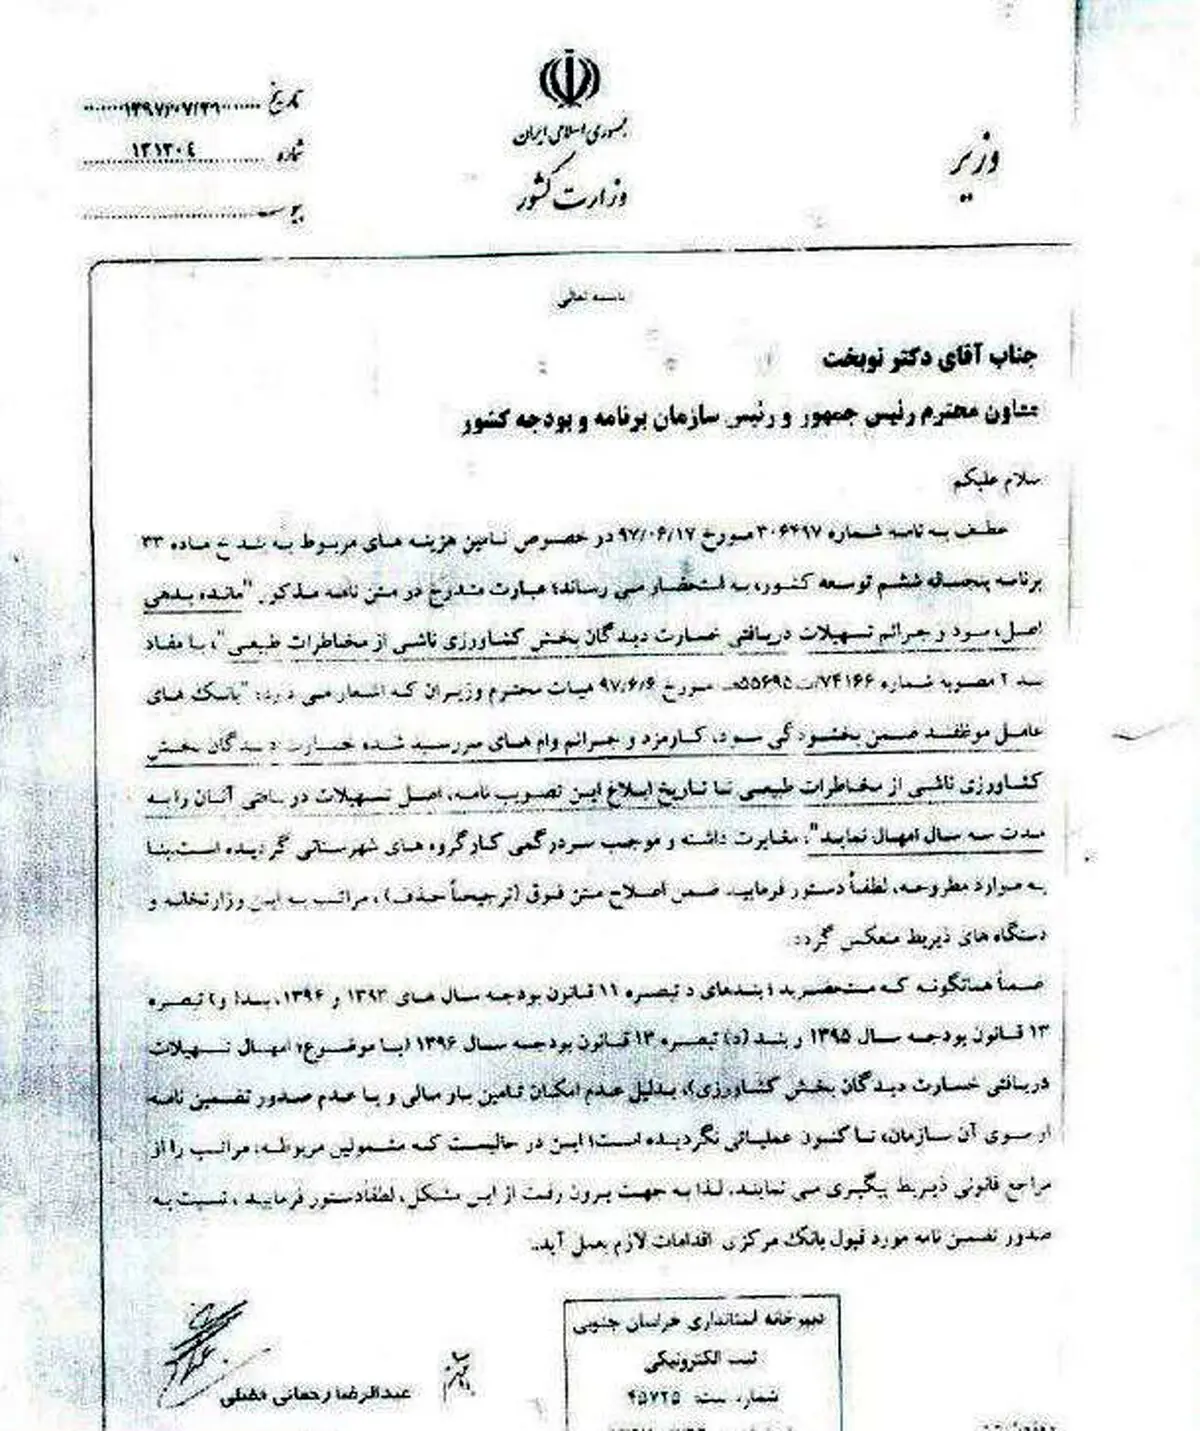 تاریخ ۱۳۹۷/۰۷/۲۹
شماره ۱۲۱۳۰۴
پیوست
جمهوری اسلامی ایران
وزارت کشور
وزیر
باسمه تعالی
جناب آقای دکتر نوبخت
معاون محترم رئیس جمهور و رئیس سازمان برنامه و بودجه کشور
سلام علیکم
عطف به نامه شماره ۳۰۶۴۹۷ مورخ ۹۷/۰۶/۱۷ در خصوص تامین هزینه های مربوط به بند خ ماده ۳۳
برنامه پنجساله ششم توسعه کشور، به استحضار می رساند؛ عبارت مندرج در متن نامه مذکور "مانده بدهی
اصل، سود و جرائم تسهیلات دریافتی خسارت دیدگان بخش کشاورزی ناشی از مخاطرات طبیعی"، با مفاد
بند ۲ مصوبه شماره ۷۴۱۶۶/ت۵۵۶۹۵هـ مورخ ۹۷/۶/۶ هیات محترم وزیران که اشعار می دارد: "بانک های
عامل موظفند ضمن بخشودگی سود، کارمزد و جرائم وام های سررسید شده خسارت دیدگان بخش
کشاورزی ناشی از مخاطرات طبیعی تا تاریخ ابلاغ این تصویب نامه، اصل تسهیلات دریافتی آنان را به
مدت سه سال امهال نماید"، مغایرت داشته و موجب سردرگمی کارگروه های شهرستانی گردیده است.بنا
به موارد مطروحه، لطفاً دستور فرمایید ضمن اصلاح متن فوق (ترجیحاً حذف)، مراتب به این وزارتخانه و
دستگاه های ذیربط منعکس گردد.
ضمناً همانگونه که مستحضرید؛ بندهای د تبصره ۱۱ قانون بودجه سال های ۱۳۹۳ و ۱۳۹۴، بند( و) تبصره
۱۳ قانون بودجه سال ۱۳۹۵ و بند (د) تبصره ۱۳ قانون بودجه سال ۱۳۹۶ (با موضوع؛ امهال تسهیلات
دریافتی خسارت دیدگان بخش کشاورزی)، بدلیل عدم امکان تامین بار مالی و یا عدم صدور تضمین نامه
از سوی آن سازمان، تا کنون عملیاتی نگردیده است؛ این در حالیست که مشمولین مربوطه، مراتب را از
مراجع قانونی ذیربط پیگیری می نمایند. لذا به جهت برون رفت از این مشکل، لطفاً دستور فرمایید، نسبت به
صدور تضمین نامه مورد قبول بانک مرکزی اقدامات لازم بعمل آید.
عبدالرضا رحمانی فضلی
دبیرخانه استانداری خراسان جنوبی
ثبت الکترونیکی
شماره ثبت: ۴۵۷۲۵